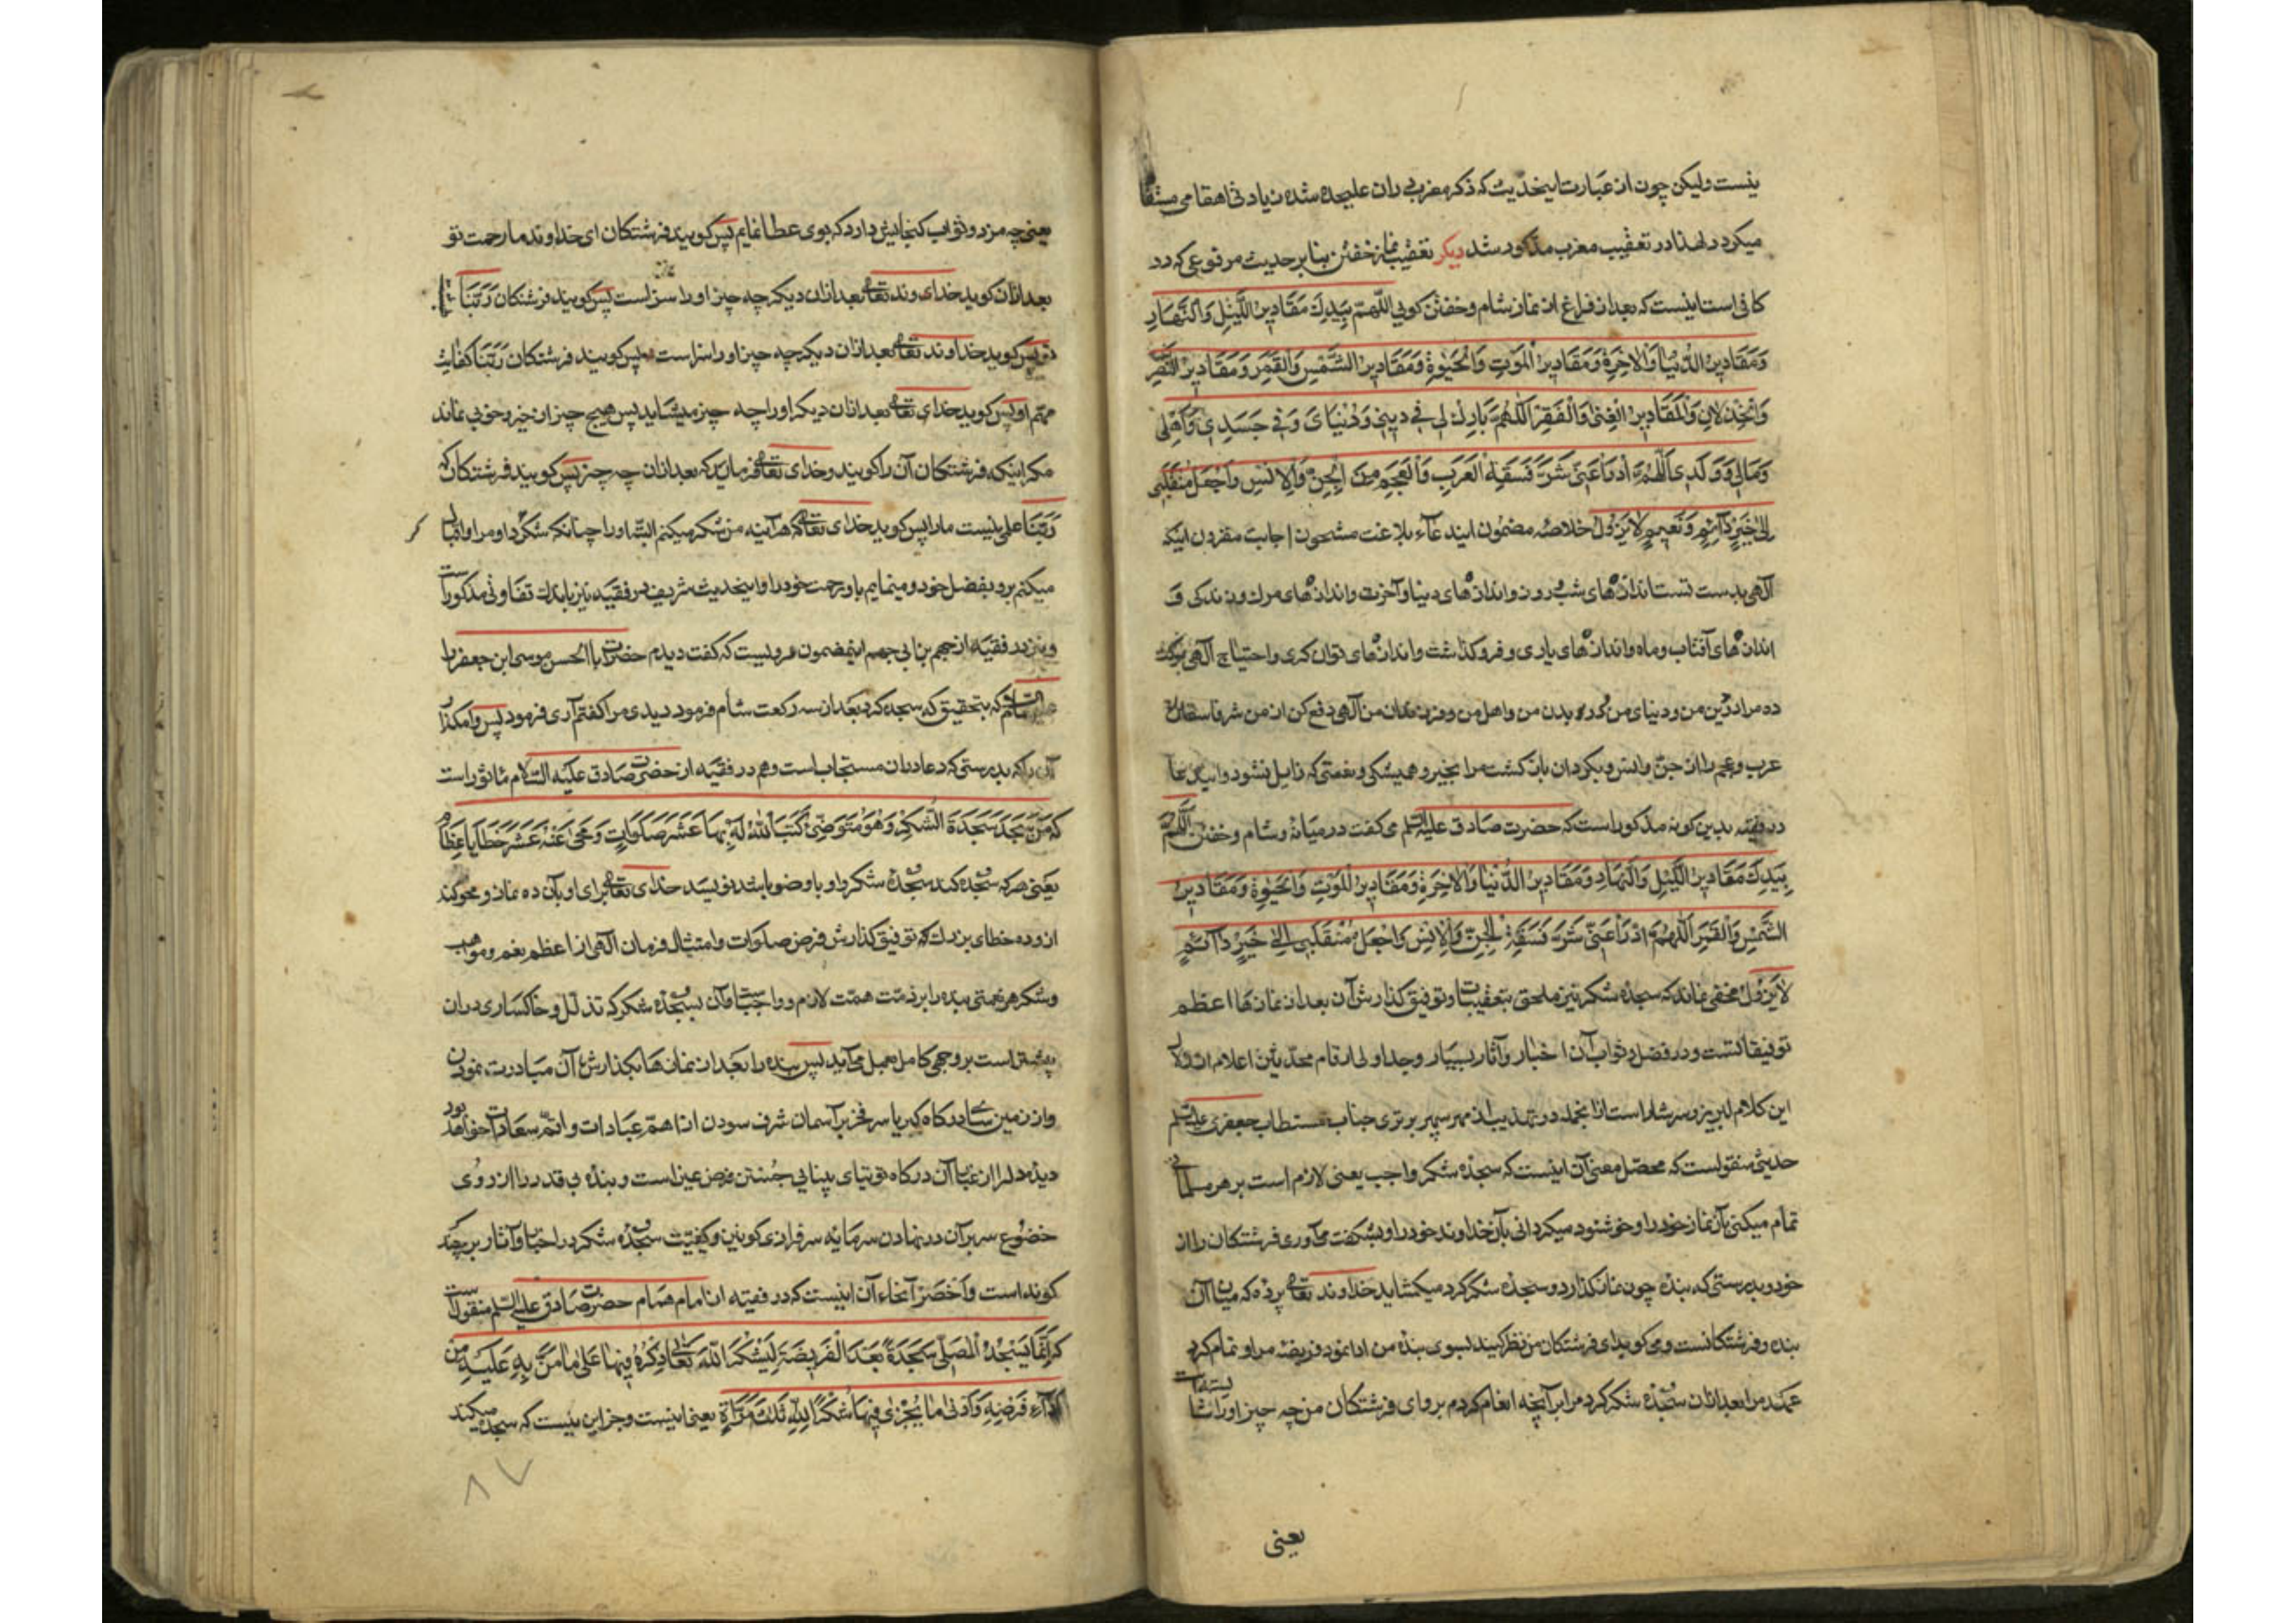 نیست ولیکن چون از عبارت اینحدیث که ذکر مغرب دران علیحده شده زیادتی اهتمامی مستفا
میکردد لهذا در تعقیب مغرب مذکور شد دیکر تعقیب نماز خفتن بنابر حدیث مرفوعی که در
کافی است اینست که بعد از فراغ از نماز شام و خفتن کویی اللّهمّ بِیَدِكَ مَقَادِیرُ اللَّیْلِ وَالنَّهَارِ
وَمَقَادِیرُ الدُّنْیَا وَالاخِرَةِ وَمَقَادِیرُ الْمَوْتِ وَالْحَیٰوةِ وَمَقَادِیرُ الشَّمْسِ وَالْقَمَرِ وَمَقَادِیرُ النَّصْرِ
وَالْخِذْلانِ وَالْمَقَادِیرُ الْغِنیٰ وَالْفَقْرِ اَللّهُمَّ بَارِكْ لِی فِی دِینِی وَدُنْیَایَ وَفِی جَسَدِی وَاَهْلِی
وَمَالِی وَوَلَدِی اَللّٰهُمَّ ادْرَأْ عَنِّی شَرَّ فَسَقَةِ الْعَرَبِ وَالْعَجَمِ مِنَ الْجِنِّ وَالاِنْسِ وَاجْعَلْ مُنْقَلَبِی
اِلیٰ خَیْرٍ دَآئِمٍ وَنَعِیمٍ لایَزُولُ خلاصهٔ مضمون ایندعآء بلاغت مشحون اجابت مقرون اینکه
الهی بدست تست اندازه‌های شب و روز و اندازه‌های دنیا و آخرت و اندازه‌های مرك و زندکی و
اندازه‌های آفتاب و ماه و اندازه‌های یاری و فروکذاشت و اندازه‌های توانکری و احتیاج آلهی برکت
ده مرا در دین من و دنیای من و در بدن من و اهل من و فرزندان من آلهی دفع کن از من شر فاسقان
عرب و عجم را از جنّ و انس و بکردان بازکشت مرا بخیر و همیشکی و نعمتی که زایل نشود و ایندعا
در فقیه بدین کونه مذکور است که حضرت صادق علیه السلم می کفت در میانهٔ شام و خفتن اَللّٰهُمَّ
بِیَدِكَ مَقَادِیرُ اللَّیْلِ وَالنَّهَارِ وَمَقَادِیرُ الدُّنْیَا وَالاخِرَةِ وَمَقَادِیرُ الْمَوْتِ وَالْحَیٰوةِ وَمَقَادِیرُ
الشَّمْسِ وَالْقَمَرِ اَللّٰهُمَّ ادْرَأْ عَنِّی شَرَّ فَسَقَةِ الْجِنِّ وَالاِنْسِ وَاجْعَلْ مُنْقَلَبِی اِلیٰ خَیْرٍ دَآئِمٍ
لایَزُولُ مخفی نماند که سجدهٔ شکر نیز ملحق بتعقیبات و توفیق کذارش آن بعد از نمازها اعظم
توفیقاتست و در فضل و ثواب آن اخبار و آثار بسیار وجداول ارقام محدثین اعلام از
این کلام لبریز و سرشار است ازانجمله در تهذیب از مهر سپهر برتری جناب مستطاب جعفری علیه السلم
حدیثی منقولست که محصّل معنی آن اینست که سجدهٔ شکر واجب یعنی لازم است بر هر مسلمان
تمام میکنی بآن نماز خود را و خوشنود میکردانی بآن خداوند خود را و بشکفت می‌آوری فرشتکان را از
خود و بدرستی که بنده چون نماز کذارد و سجدهٔ شکر کرد میکشاید خداوند تعالی پرده که میان آن
بنده و فرشتکانست و می کوید ای فرشتکان من نظر کنید بسوی بندهٔ من ادا نمود فریضهٔ مرا و تمام کرد
عهد مرا بعد ازان سجدهٔ شکر کرد مرا بر آنچه انعام کردم بر وای فرشتکان من چه چیز او را
یعنی
یعنی چه مزد و ثواب کنجایش دارد که بوی عطا نمایم پس کویند فرشتکان ای خداوند ما رحمت تو
بعد ازان کوید خدای وند تعالی بعد ازان دیکر چه چیز او را سزاست پس کویند فرشتکان رَبَّنَا
تو پس کوید خداوند تعالی بعد ازان دیکر چه چیز او را سزاست پس کویند فرشتکان رَبَّنَا کفایت
مهمّ او پس کوید خدای تعالی بعد ازان دیکر او را چه چیز میشاید پس هیچ چیز از خیر و خوبی نماند
مکر اینکه فرشتکان آن را کویند و خدای تعالی فرماید که بعد ازان چه چیز پس کویند فرشتکان که
رَبَّنَا علمی نیست ما را پس کوید خدای تعالی که هرآینه من شکر میکنم البته او را چنانکه شکر کرد او مرا و اقبال
میکنم برو بفضل خود و مینمایم باو رحمت خود را و اینحدیث شریف در فقیه نیز باندك تفاوتی مذکور است
و نیز در فقیه از جهم بن ابی جهم اینمضمون مرویست که کفت دیدم حضرت ابا الحسن موسی ابن جعفر را
علیه السلام که بتحقیق که سجده کرد بعد از سه رکعت شام فرمود دیدی مرا کفتم آری فرمود پس وامکذار
آن را که بدرستی که دعا دران مستجاب است و هم در فقیه از حضرت صادق علیه السّلام ماثور است
که مَنْ سَجَدَ سَجْدَةَ الشُّکْرِ وَهُوَ مُتَوَضِّئٌ کَتَبَ اللّٰهُ لَهُ بِهَا عَشْرَ صَلَوَاتٍ وَمَحیٰ عَنْهُ عَشْرَ خَطَایَا عِظَامٍ
یعنی هر که سجده کند سجدهٔ شکر و او با وضو باشد بنویسد خدای تعالی برای او بآن ده نماز و محو کند
ازو ده خطای بزرك که توفیق کذارش فرض صلوات و امتثال فرمان آلهی از اعظم نعم و مواهب
و شکر هر نعمتی بنده را بر ذمّت همّت لازم و واجبست و آن بسجدهٔ شکر که تذلّل و خاکساری دران
بیشتر است بر وجهی کامل بعمل می آید پس بنده را بعد از نمازها بکذارش آن مبادرت نمودن
و از زمین سای درکاه کبریا سر فخر بر آسمان شرف سودن از اهمّ عبادات و اتمّ سعادات خواهد بود
دیدهٔ دل را از غبار آن درکاه توتیای بینایی جستن فرض عین است و بندهٔ بی قدر را از روی
خضوع سر بر آن در نهادن سرمایه سرفرازی کونین و کیفیّت سجدهٔ شکر در اخبار و آثار بر چند
کونه است و اَخْصَر اَنحاء آن اینست که در فقیه از امام همام حضرت صادق علیه السلم منقول است
که اِنَّمَا یَسْجُدُ الْمُصَلِّی سَجْدَةً بَعْدَ الْفَرِیضَةِ لِیَشْکُرَ اللّٰهَ تَعَالیٰ ذِکْرُهُ فِیهَا عَلیٰ مَا مَنَّ بِهِ عَلَیْهِ مِنْ
اَدَآءِ فَرْضِهِ وَاَدْنیٰ مَا یُجْزِی فِیهَا شُکْرًا لِلّٰهِ ثَلٰثَ مَرَّاتٍ یعنی اینست و جز این نیست که سجده میکند
۸۷